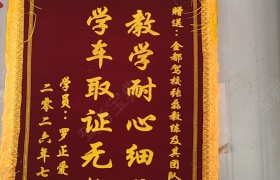 赠送：金都驾校陆磊教练及其团队
教学耐心细
学车取证无
学员：罗正爱
二零二六年七